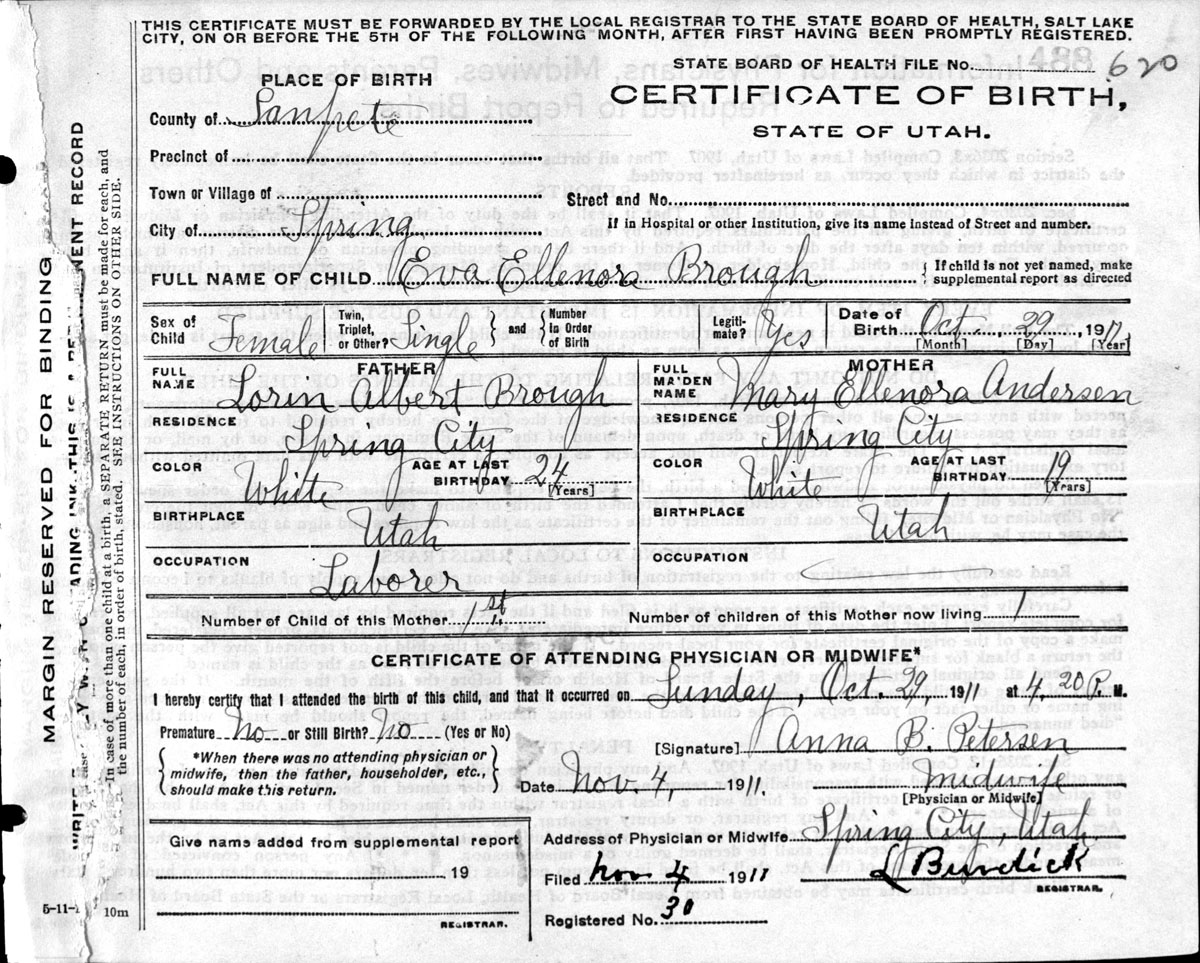 THIS CERTIFICATE MUST BE FORWARDED BY THE LOCAL REGISTRAR TO THE STATE BOARD OF HEALTH, SALT LAKE
CITY, ON OR BEFORE THE 5TH OF THE FOLLOWING MONTH, AFTER FIRST HAVING BEEN PROMPTLY REGISTERED.
STATE BOARD OF HEALTH FILE No. 488 620
PLACE OF BIRTH
CERTIFICATE OF BIRTH,
STATE OF UTAH.
County of Sanpete
Precinct of
Town or Village of
Street and No.
City of Spring
[If in Hospital or other Institution, give its name instead of Street and number.
FULL NAME OF CHILD Eva Ellenora Brough
{ If child is not yet named, make
supplemental report as directed
Sex of Child Female
Twin, Triplet, or Other? Single and { Number in Order of Birth
Legitimate? Yes
Date of Birth Oct. 29 1911
[Month] [Day] [Year]
FATHER
FULL NAME Lorin Albert Brough
MOTHER
FULL MAIDEN NAME Mary Ellenora Andersen
RESIDENCE Spring City
RESIDENCE Spring City
COLOR White AGE AT LAST BIRTHDAY 24 [Years]
COLOR White AGE AT LAST BIRTHDAY 19 [Years]
BIRTHPLACE Utah
BIRTHPLACE Utah
OCCUPATION Laborer
OCCUPATION
Number of Child of this Mother 1st
Number of children of this Mother now living 1
CERTIFICATE OF ATTENDING PHYSICIAN OR MIDWIFE*
I hereby certify that I attended the birth of this child, and that it occurred on Sunday, Oct. 29, 1911 at 4,20 P. M.
Premature No or Still Birth? No (Yes or No)
{ *When there was no attending physician or
midwife, then the father, householder, etc.,
should make this return. }
[Signature] Anna B. Petersen
Date Nov 4 1911. midwife
[Physician or Midwife]
Give name added from supplemental report
19
REGISTRAR.
Address of Physician or Midwife Spring City Utah
Filed Nov 4 1911 L Burdick
REGISTRAR.
Registered No. 30
5-11-1 10m
MARGIN RESERVED FOR BINDING
ADING INK-THIS IS A PERMANENT RECORD
In case of more than one child at a birth, a SEPARATE RETURN must be made for each, and
the number of each, in order of birth, stated. SEE INSTRUCTIONS ON OTHER SIDE.